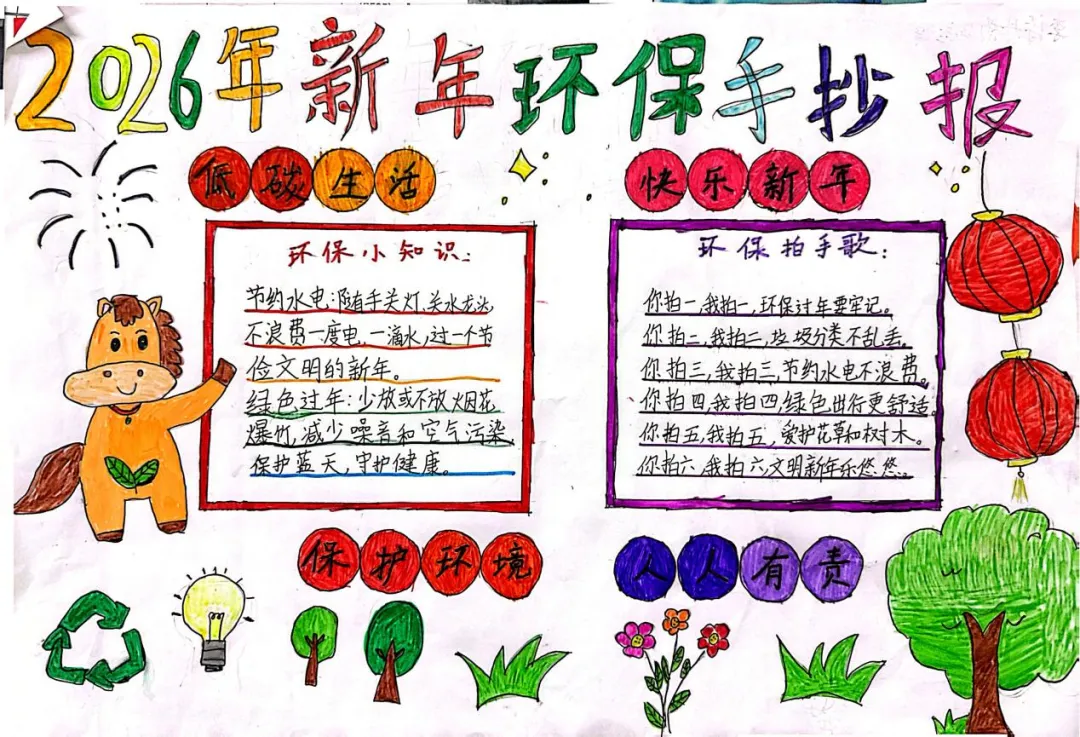 2026年新年环保手抄报
低碳生活
快乐新年
环保小知识:
节约水电:随手关灯,关水龙头,
不浪费一度电,一滴水,过一个节
俭文明的新年。
绿色过年:少放或不放烟花
爆竹,减少噪音和空气污染,
保护蓝天,守护健康。
环保拍手歌:
你拍一,我拍一,环保过年要牢记。
你拍二,我拍二,垃圾分类不乱丢。
你拍三,我拍三,节约水电不浪费。
你拍四,我拍四,绿色出行更舒适。
你拍五,我拍五,爱护花草和树木。
你拍六,我拍六,文明新年乐悠悠。
保护环境
人人有责